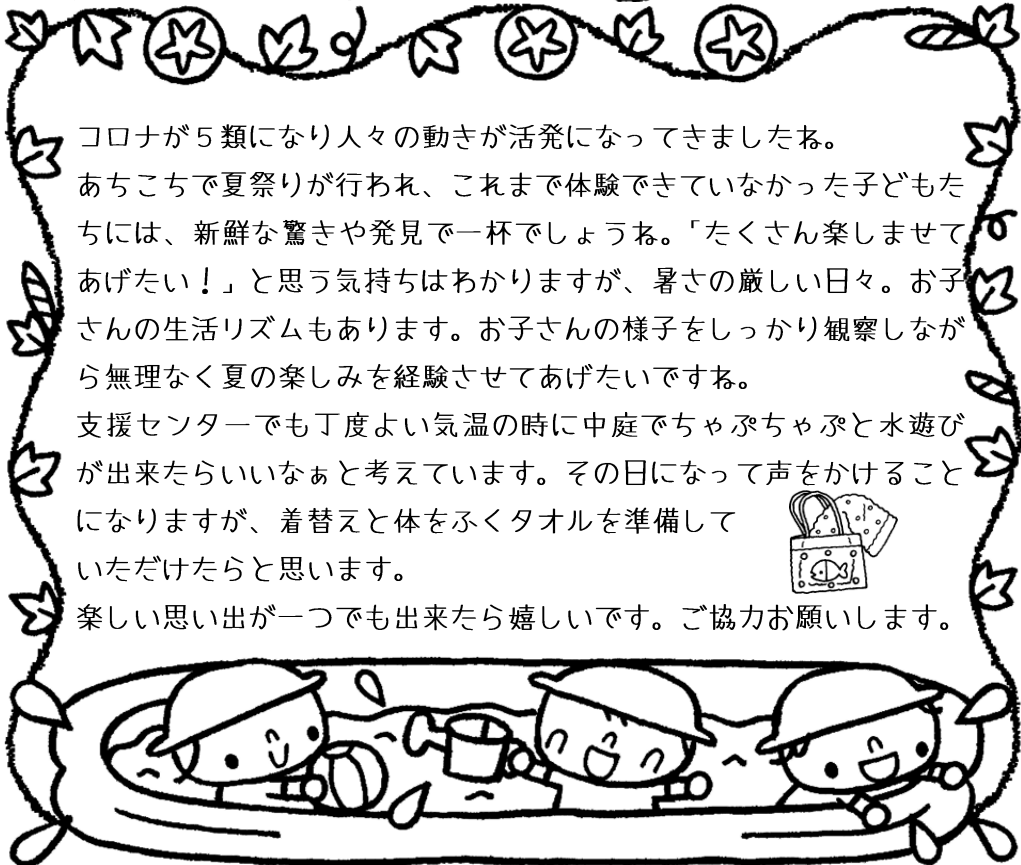 コロナが５類になり人々の動きが活発になってきましたね。
あちこちで夏祭りが行われ、これまで体験できていなかった子どもた
ちには、新鮮な驚きや発見で一杯でしょうね。「たくさん楽しませて
あげたい！」と思う気持ちはわかりますが、暑さの厳しい日々。お子
さんの生活リズムもあります。お子さんの様子をしっかり観察しなが
ら無理なく夏の楽しみを経験させてあげたいですね。
支援センターでも丁度よい気温の時に中庭でちゃぷちゃぷと水遊び
が出来たらいいなぁと考えています。その日になって声をかけること
になりますが、着替えと体をふくタオルを準備して
いただけたらと思います。
楽しい思い出が一つでも出来たら嬉しいです。ご協力お願いします。